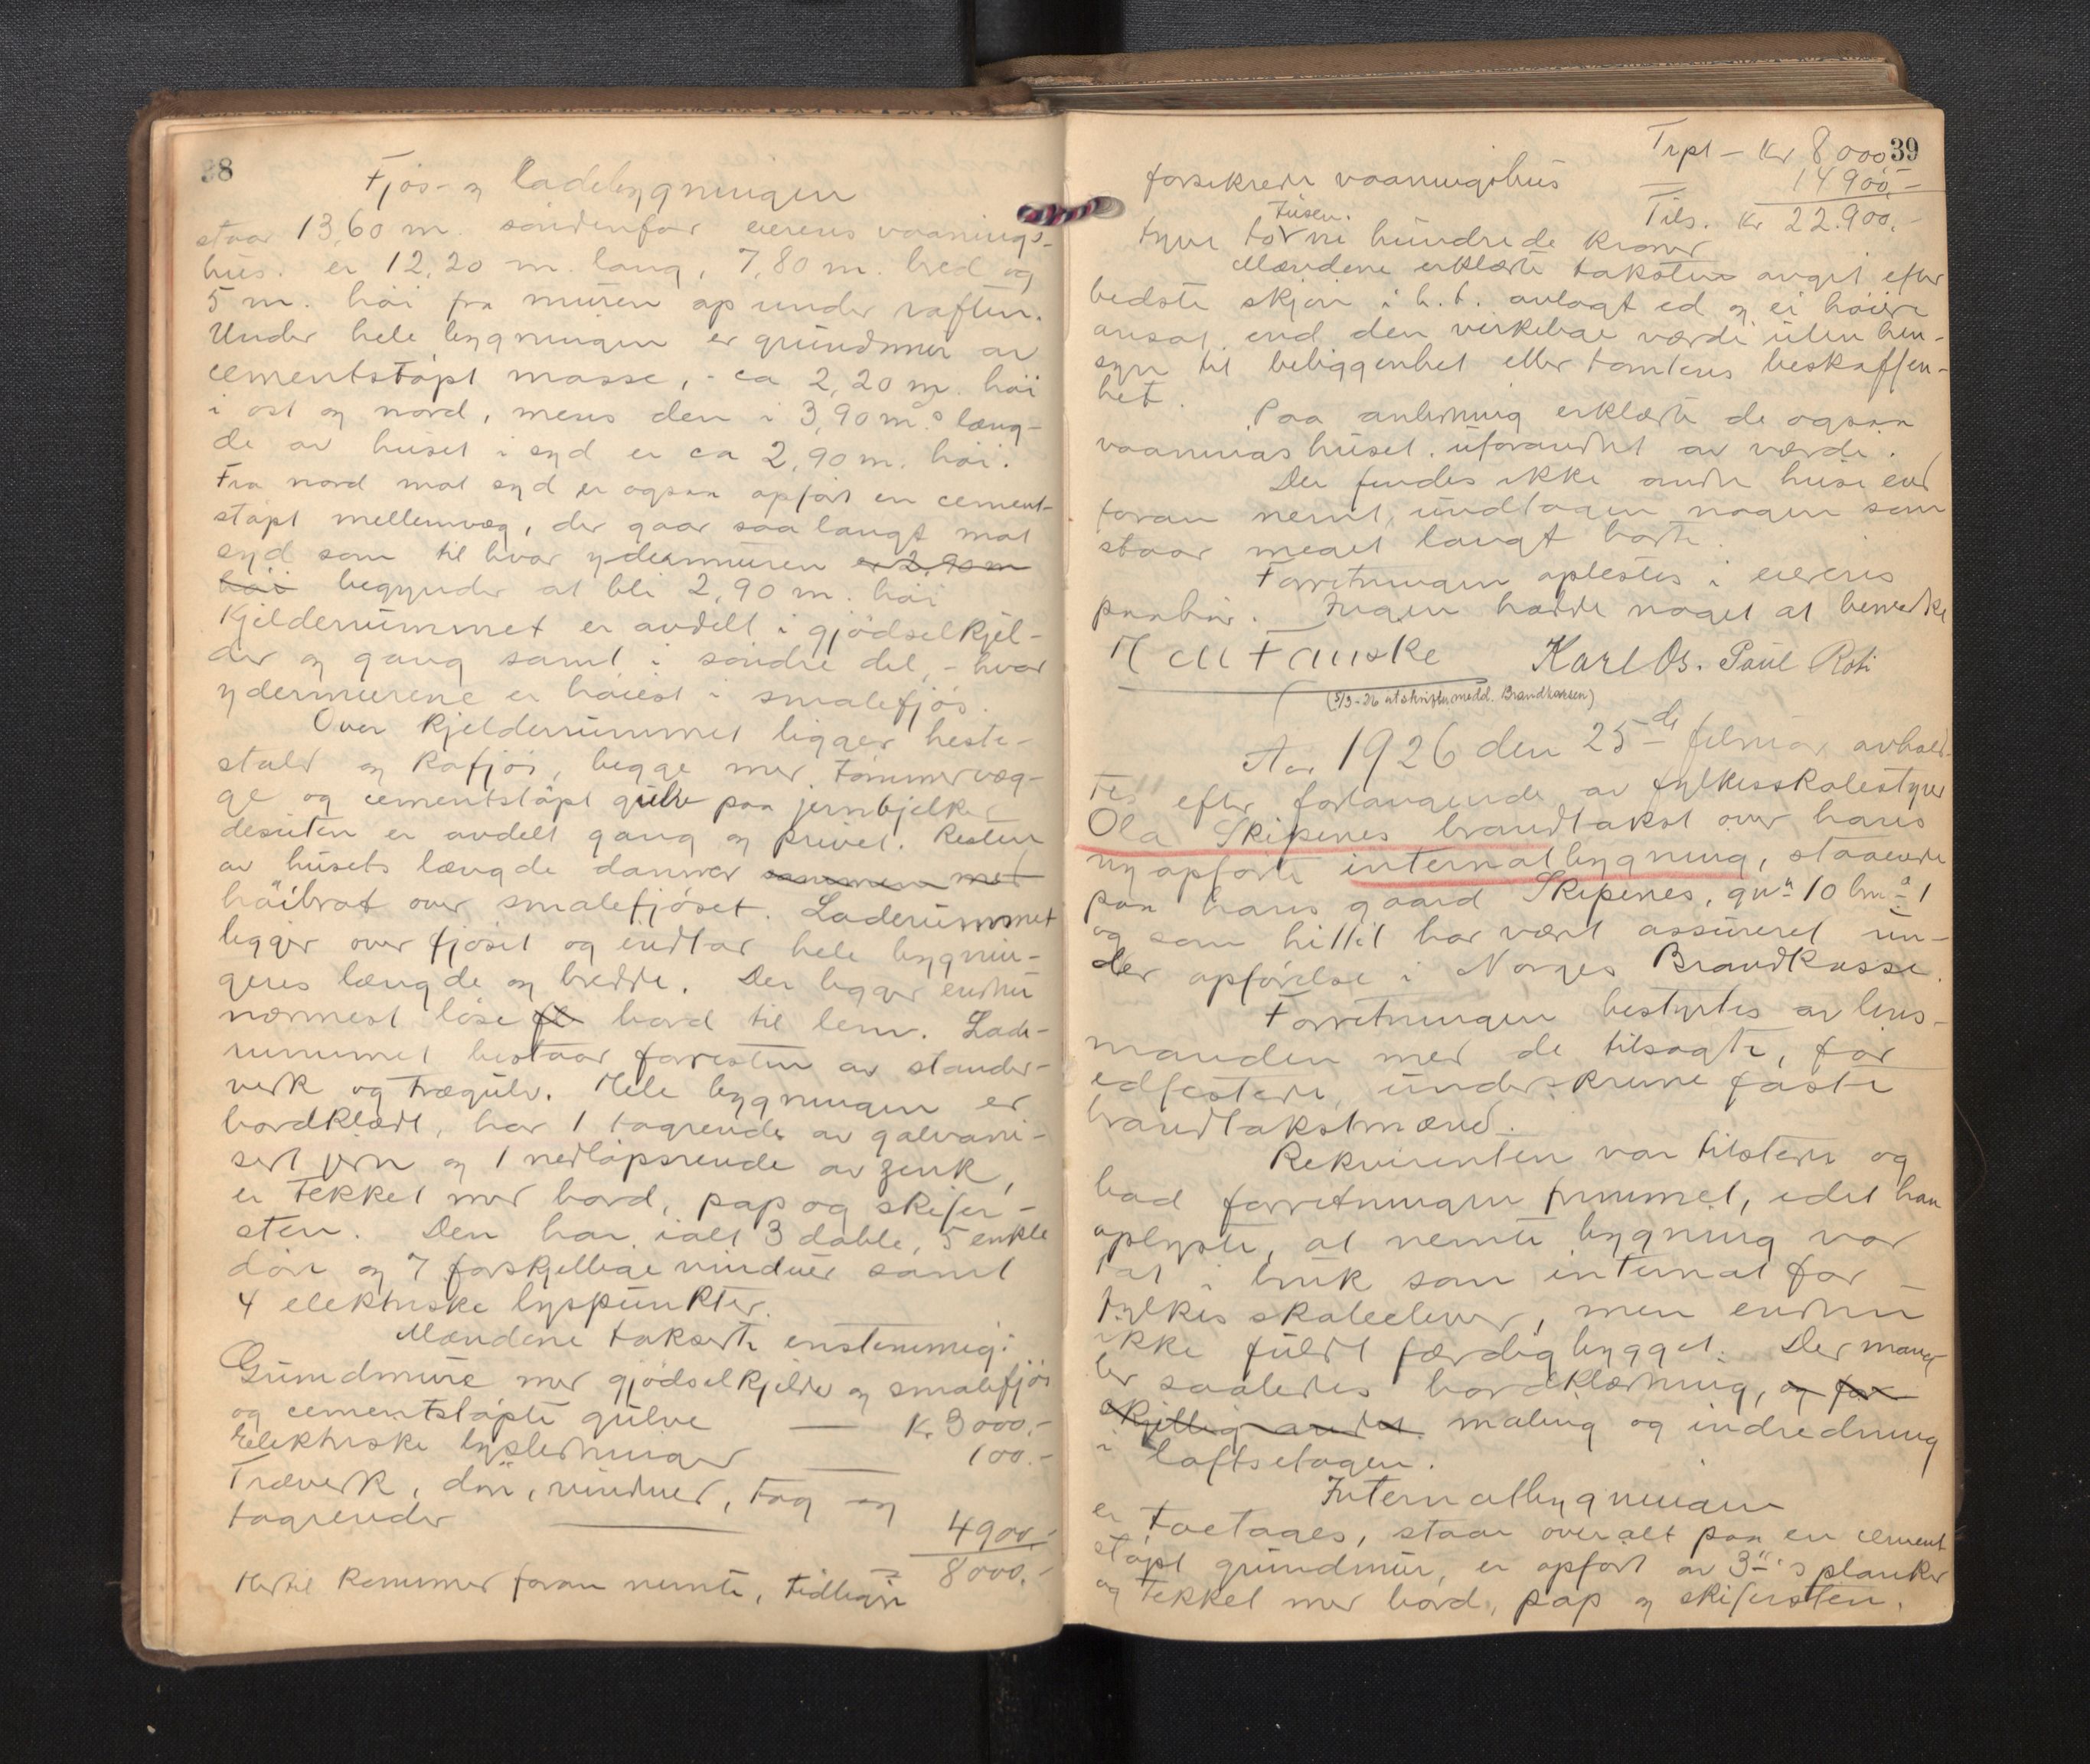 38
Fjøs- og ladebygningen
staar 13,60 m. søndenfor eierens vaanings-
hus. er 12,20 m. lang, 7,80 m. bred og
5 m. høi fra muren op under raften.
Under hele bygningen er grundmur av
cementstøpt masse, - ca 2,20 m. høi
i øst og nord, mens den i 3,90 m.s læng-
de av huset i syd er ca 2,90 m. høi.
Fra nord mot syd er ogsaa opført en cement-
støpt mellemvæg, der gaar saa langt mot
syd som til hvor ydermuren er 2,90 m
høi begynder at bli 2,90 m. høi
Kjelderrummet er avdelt i gjødselkjel-
der og gang samt i søndre del, - hvor
ydermurene er høiest i smalefjøs.
Over kjelderrummet ligger heste-
stald og kofjøs, begge med tømmervæg-
ge og cementstøpt gulv paa jernbjelker
desuten er avdelt gang og privet. Resten
av husets længde danner sammen med
høibrot over smalefjøset. Laderummet
ligger over fjøset og indtar hele bygnin-
gens længde og bredde. Der ligger endnu
nærmest løse bord til lem. Lade-
rummet bestaar forresten av stander-
verk og trægulv. Hele bygningen er
bordklædt, har 1 tagrende av galvani-
sert jern og 1 nedløpsrende av zink,
er tekket med bord, pap og skifer-
sten. Den har ialt 3 doble, 5 enkle
døre og 7 forskjellige vinduer samt
4 elektriske lyspunkter.
Mændene takserte enstemmig:
Grundmure med gjødselkjelder og smalefjøs
og cementstøpte gulve — Kr 3000.-
Elektriske lysledninger — 100.-
Træverk, døre, vinduer, tag og
tagrender — 4900.-
8000.-
Hertil kommer foran nemte, tidligere
39
Trpt - Kr 8000
forsikrede vaaningshus — 14900.-
Tils. Kr 22.900.-
tusen.
tyve to ni hundrede kroner
Mændene erklærte taksten avgit efter
bedste skjøn i h.t. avlagt ed og ei høiere
ansat end den virkelige værdi uten hen-
syn til beliggenhet eller tomtens beskaffen-
het.
Paa anledning erklærte de ogsaa
vaaningshuset uforandret av værdi.
Der findes ikke andre huse end
foran nemt, undtagen nogen som
staar meget langt borte.
Forretningen oplestes i eierens
paahør. Ingen hadde noget at bemerke
Karl Os. Paul Roti
(5/3-26 utskrift medd. Brandkassen)
Aar 1926 den 25de februar avhold-
tes efter forlangende av fylkesskolestyrer
Ola Skipenes brandtakst over hans
nyopførte internatbygning, staaende
paa hans gaard Skipenes, gn. 10 bn. 1
og som hittil har vært assureret un-
der opførelse i Norges Brandkasse.
Forretningen bestyrtes av lens-
manden med de tilsagte, før
edfestede, underskrevne faste
brandtakstmænd.
Rekvirenten var tilstede og
bad forretningen fremmet, idet han
oplyste, at nemte bygning var
tat i bruk som internat for
fylkesskoleelever, men endnu
ikke fuldt færdig bygget. Der mang-
ler saaledes bordklædning, og for-
skjellig andet maling og indredning
i loftsetagen.
Internatbygningen
er toetages, staar overalt paa en cement
støpt grundmur, er opført av 3"s planker
og tekket med bord, pap og skifersten.